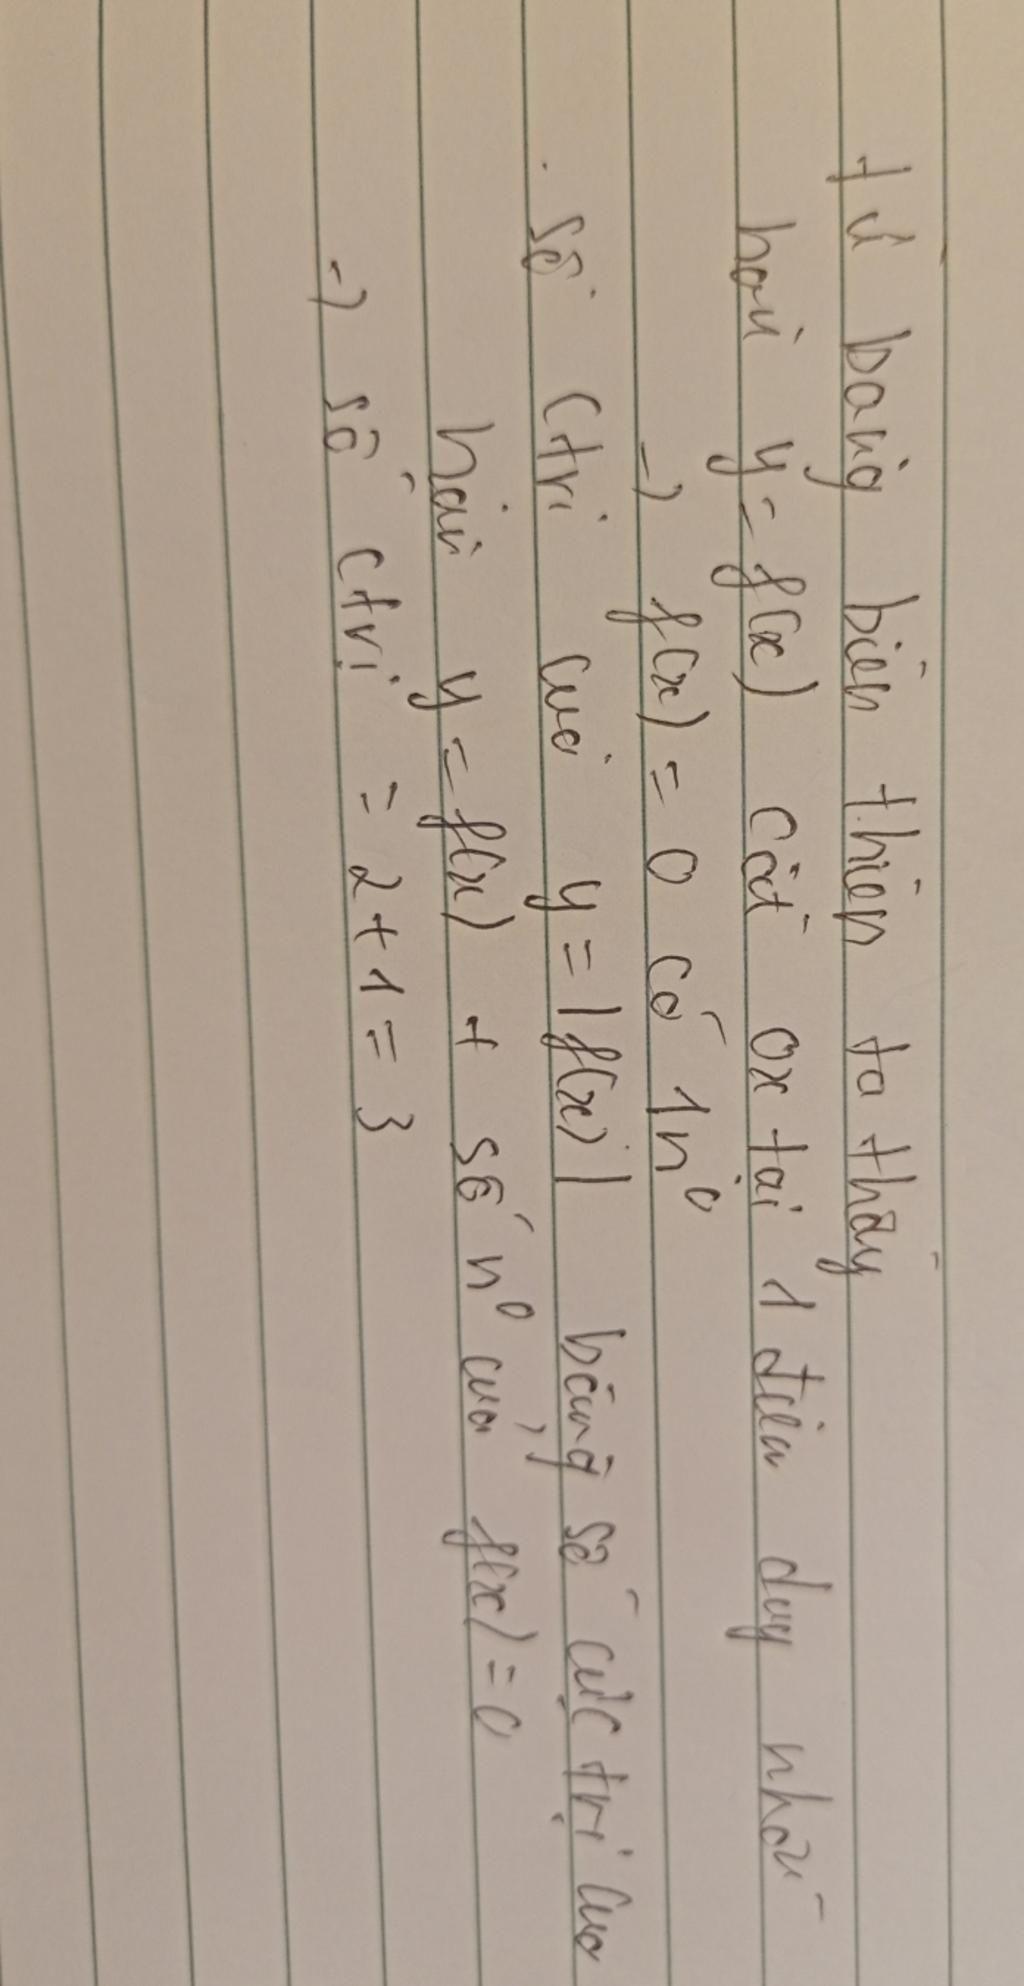 từ bảng biến thiên ta thấy
hàm y = f(x) cắt ox tại 1 điểm duy nhất
-) f(x) = 0 có 1 n⁰
. số ctrị của y = |f(x)| bằng số cực trị của
hàm y = f(x) + số n⁰ của f(x) = 0
-) số ctrị = 2 + 1 = 3